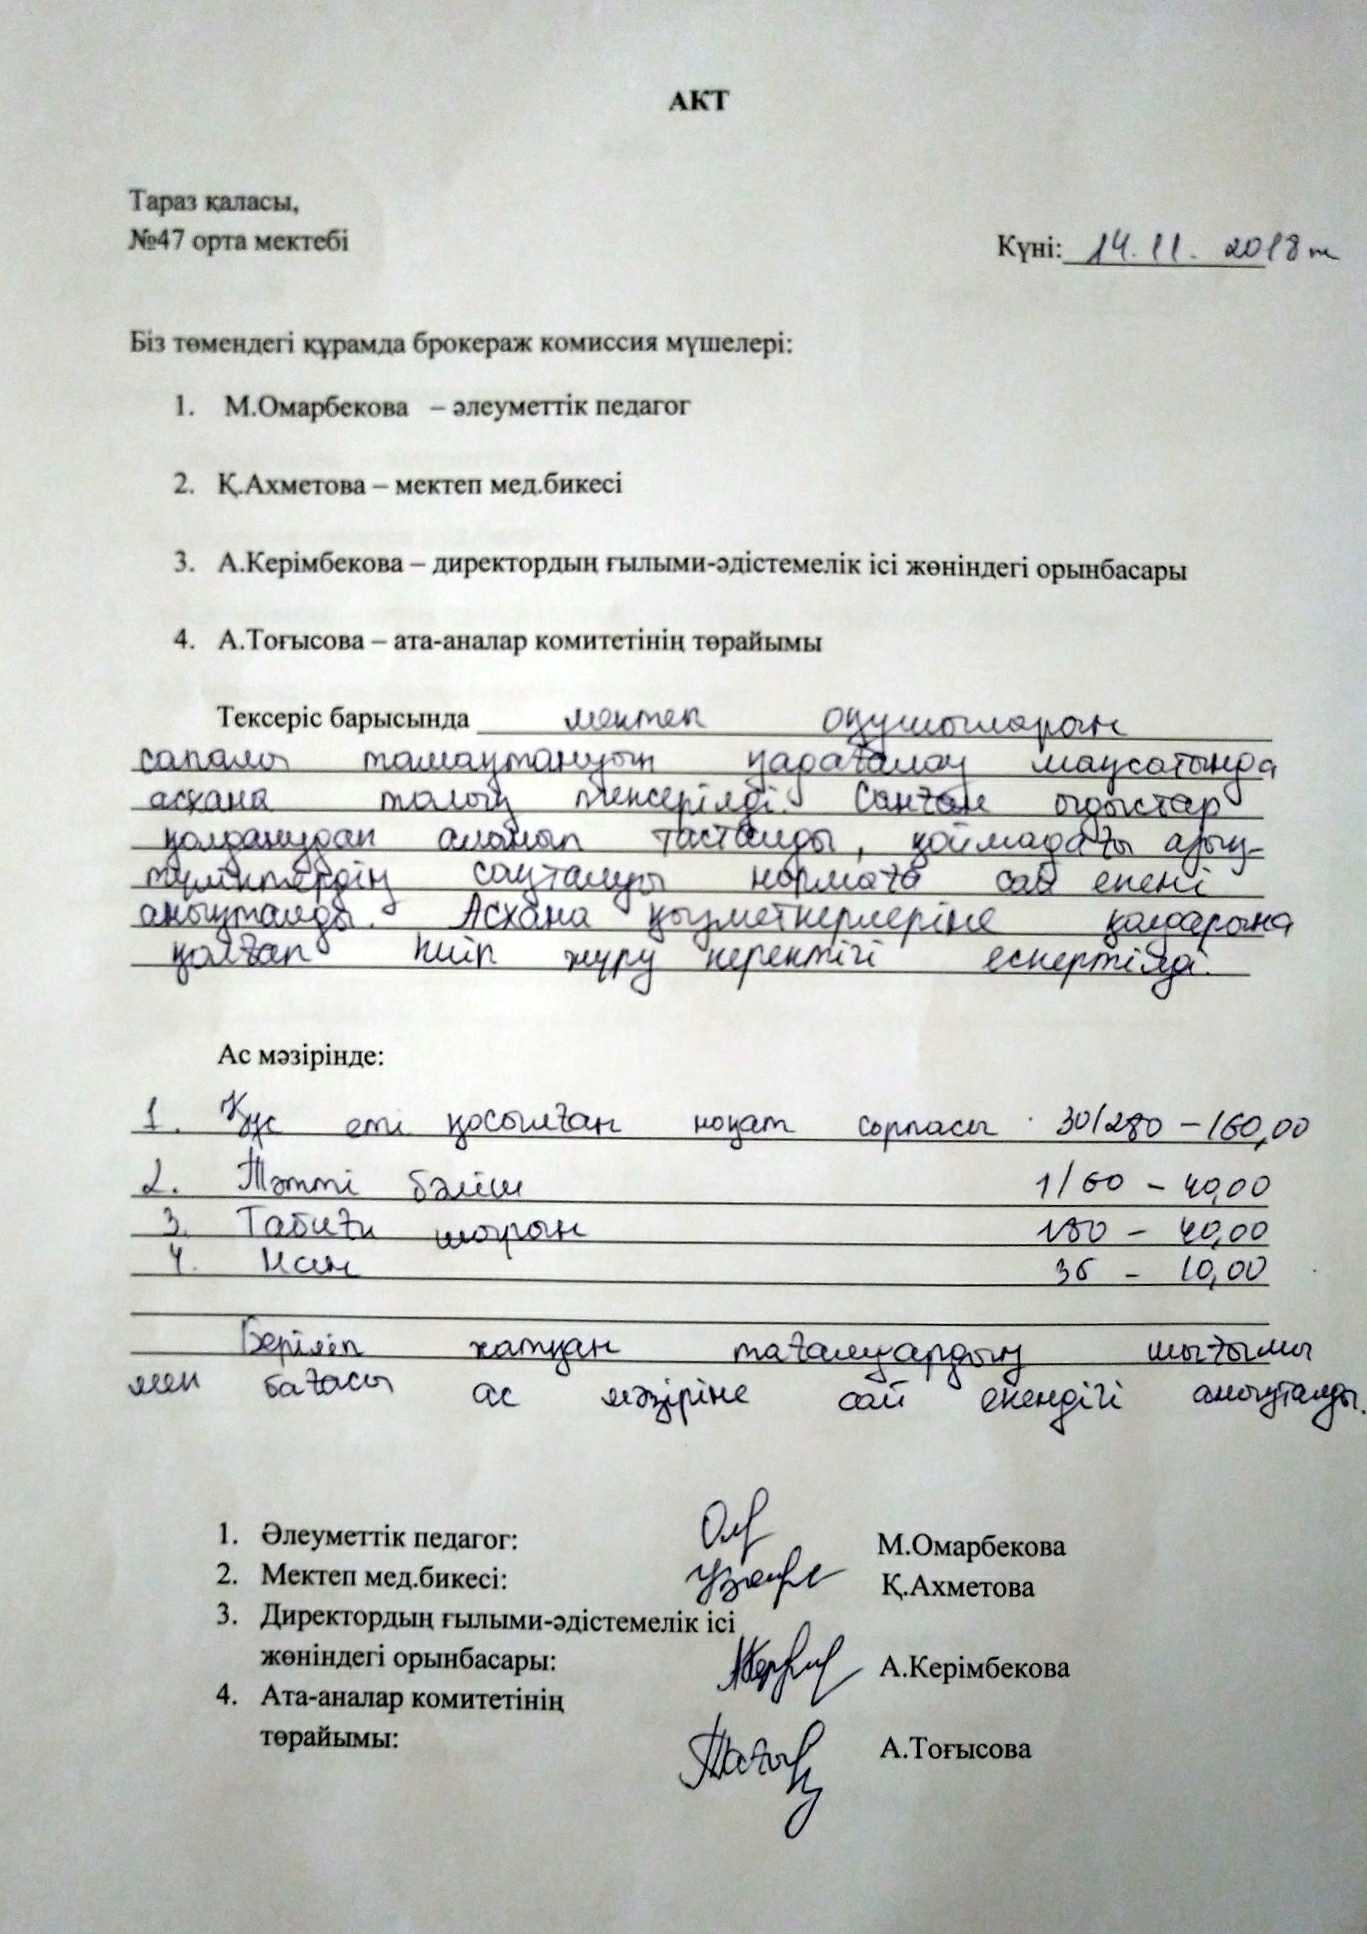 АКТ
Тараз қаласы,
№47 орта мектебі
Күні: 14.11. 2018ж
Біз төмендегі құрамда брокераж комиссия мүшелері:
1. М.Омарбекова – әлеуметтік педагог
2. Қ.Ахметова – мектеп мед.бикесі
3. А.Керімбекова – директордың ғылыми-әдістемелік ісі жөніндегі орынбасары
4. А.Тоғысова – ата-аналар комитетінің төрайымы
Тексеріс барысында мектеп оқушыларын
сапалы тамақтануын қадағалау мақсатында
асхана толық тексерілді. Сынған ыдыстар
қолданудан алынып тасталды, қоймадағы азық-
түліктердің сақталуы нормаға сай екені
анықталды. Асхана қызметкерлеріне қолдарына
қолғап киіп жүру керектігі ескертілді.
Ас мәзірінде:
1. Құс еті қосылған ноқат сорпасы 30/280 – 160,00
2. Тәтті бәліш 1/60 – 40,00
3. Табиғи шырын 180 – 40,00
4. Нан 36 – 10,00
Беріліп жатқан тағамдардың шығымы
мен бағасы ас мәзіріне сай екендігі анықталды.
1. Әлеуметтік педагог: М.Омарбекова
2. Мектеп мед.бикесі: Қ.Ахметова
3. Директордың ғылыми-әдістемелік ісі
жөніндегі орынбасары: А.Керімбекова
4. Ата-аналар комитетінің
төрайымы: А.Тоғысова